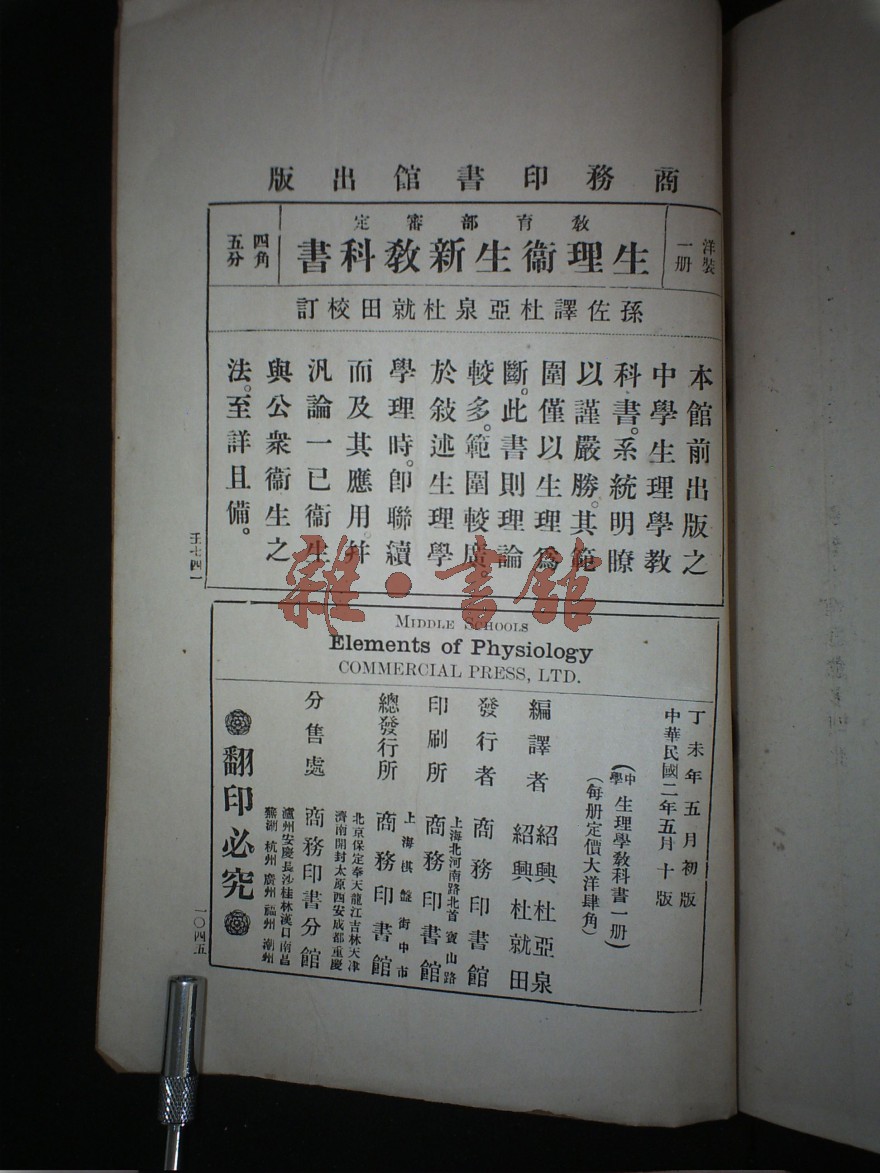 商務印書館出版
洋裝一册
教育部審定
生理衞生新教科書
四角五分
孫佐譯杜亞泉杜就田校訂
本館前出版之
中學生理學教
科書。系統明瞭
以謹嚴勝。其範
圍僅以生理爲
斷。此書則理論
較多。範圍較廣。
於敍述生理學
學理時。卽聯續
而及其應用。幷
汎論一已衞生
與公衆衞生之
法。至詳且備。
王七四一
雜·書館
MIDDLE SCHOOLS
Elements of Physiology
COMMERCIAL PRESS, LTD.
丁未年五月初版
中華民國二年五月十版
(中學)生理學敎科書一册)
(每册定價大洋肆角)
編譯者 紹興杜亞泉
紹興杜就田
發行者 商務印書館
上海北河南路北首寶山路
印刷所 商務印書館
上海棋盤街中市
總發行所 商務印書館
北京保定奉天龍江吉林天津
濟南開封太原西安成都重慶
分售處 商務印書分館
瀘州安慶長沙桂林漢口南昌
蕪湖 杭州 廣州 福州 潮州
翻印必究
一〇四五